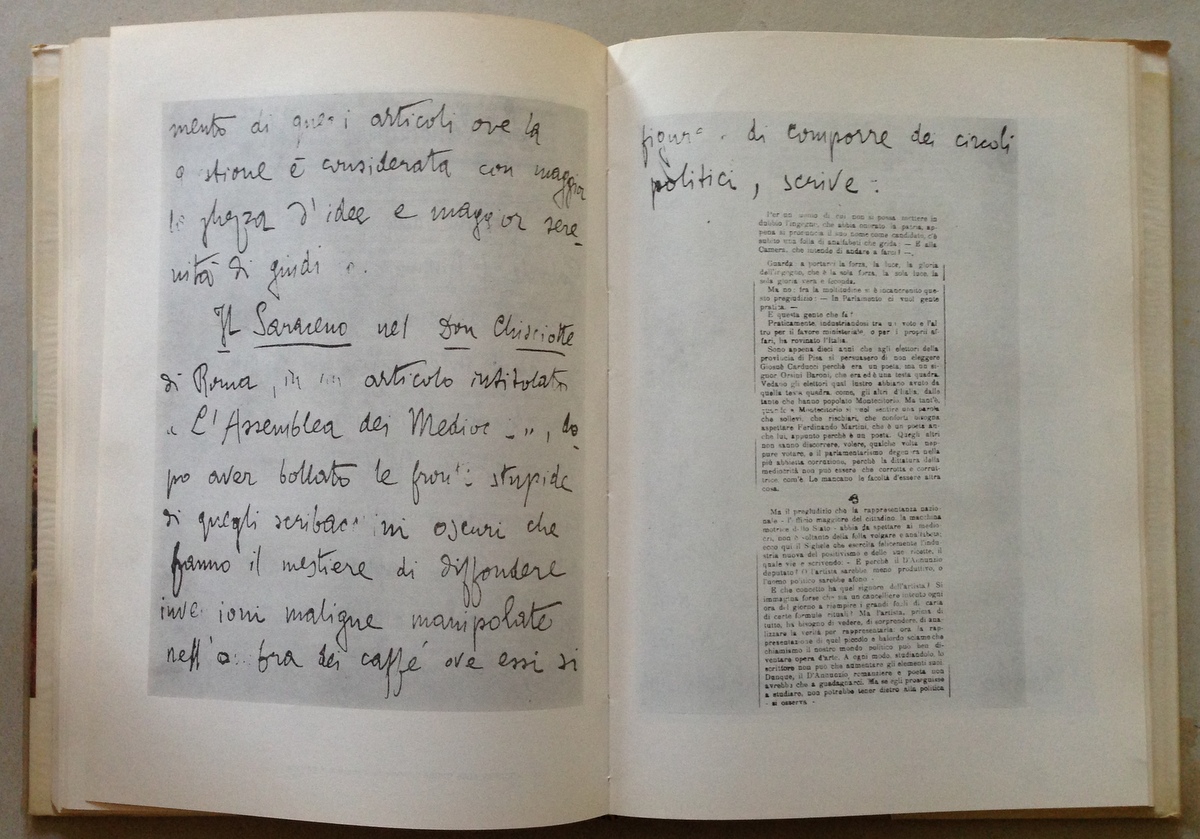 mento di questi articoli ove la
questione è considerata con maggior
larghezza d'idee e maggior sere-
nità di giudi
Il Saraceno nel Don Chisciotte
di Roma, in un articolo intitolato
„ L'Assemblea dei Medioc „, do-
po aver bollato le fronti stupide
di quegli scribacchini oscuri che
fanno il mestiere di diffondere
invenzioni maligne manipolate
nell' ombra dei caffé ove essi si
figurano di comporre dei circoli
politici, scrive:
Per un uomo di cui non si possa mettere in
dubbio l'ingegno, che abbia onorato la patria, ap-
pena si pronuncia il suo nome come candidato, c'è
subito una folla di analfabeti che grida: — E alla
Camera, che intende di andare a farci? —.
Guarda: a portarvi la forza, la luce, la gloria
dell'ingegno, che è la sola forza, la sola luce, la
sola gloria vera e feconda.
Ma no: tra la moltitudine si è incancrenito que-
sto pregiudizio: — In Parlamento ci vuol gente
pratica. —
E questa gente che fa?
Praticamente, industriandosi tra un voto e l'al
tro per il favore ministeriale, o per i propri af-
fari, ha rovinato l'Italia.
Sono appena dieci anni che agli elettori della
provincia di Pisa si persuasero di non eleggere
Giosuè Carducci perchè era un poeta, ma un si-
gnor Orsini Baroni, che era ed è una testa quadra.
Vedano gli elettori qual lustro abbiano avuto da
quella testa quadra, come, gli altri d'Italia, dalle
tante che hanno popolato Montecitorio. Ma tant'è,
quando a Montecitorio si vuol sentire una parola
che sollevi, che rischiari, che conforti, bisogna
aspettare Ferdinando Martini, che è un poeta an-
che lui, appunto perchè è un poeta. Quegli altri
non sanno discorrere, volere, qualche volta nep-
pure votare, e il parlamentarismo degenera nella
più abbietta corruzione, perchè la dittatura della
mediocrità non può essere che corrotta e corrut-
trice com'è. Le mancano le facoltà d'essere altra
cosa.
Ma il pregiudizio che la rappresentanza nazio-
nale - l'ufficio maggiore del cittadino, la macchina
motrice dello Stato - abbia da spettare ai medio-
cri, non è soltanto della folla volgare e analfabeta;
ecco qui il Sighele che esercita felicemente l'indu-
stria nuova del positivismo e delle sue ricette, il
quale vie e scrivendo: - E perchè il D'Annunzio
deputato? O l'artista sarebbe meno produttivo, o
l'uomo politico sarebbe afono -
E che concetto ha quel signore dell'artista? Si
immagina forse che sia un cancelliere tenuto ogni
ora del giorno a riempire i grandi fogli di carta
di certe formule rituali? Ma l'artista, prima di
tutto, ha bisogno di vedere, di sorprendere, di ana-
lizzare la verità per rappresentarla: ora la rap-
presentazione di quel piccolo e balordo sciame che
chiamiamo il nostro mondo politico può ben di-
ventare opera d'arte. A ogni modo, studiandolo, lo
scrittore non può che aumentare gli elementi suoi.
Dunque, il D'Annunzio romanziere e poeta non
avrebbe che a guadagnarci. Ma se egli proseguisse
a studiare, non potrebbe tener dietro alla politica
- si osserva -